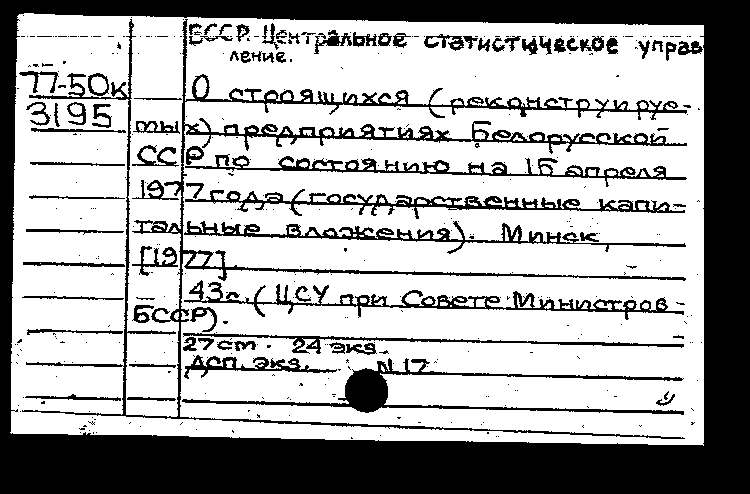 БССР. Центральное статистическое управ
ление.
77-50к
3195
О строящихся (реконструируе-
мых) предприятиях Белорусской
ССР по состоянию на 15 апреля
1977 года (государственные капи-
тальные вложения). Минск,
[1977]
43с. (ЦСУ при Совете Министров
БССР).
27см. 24 экз.
ДСП. экз. N 17